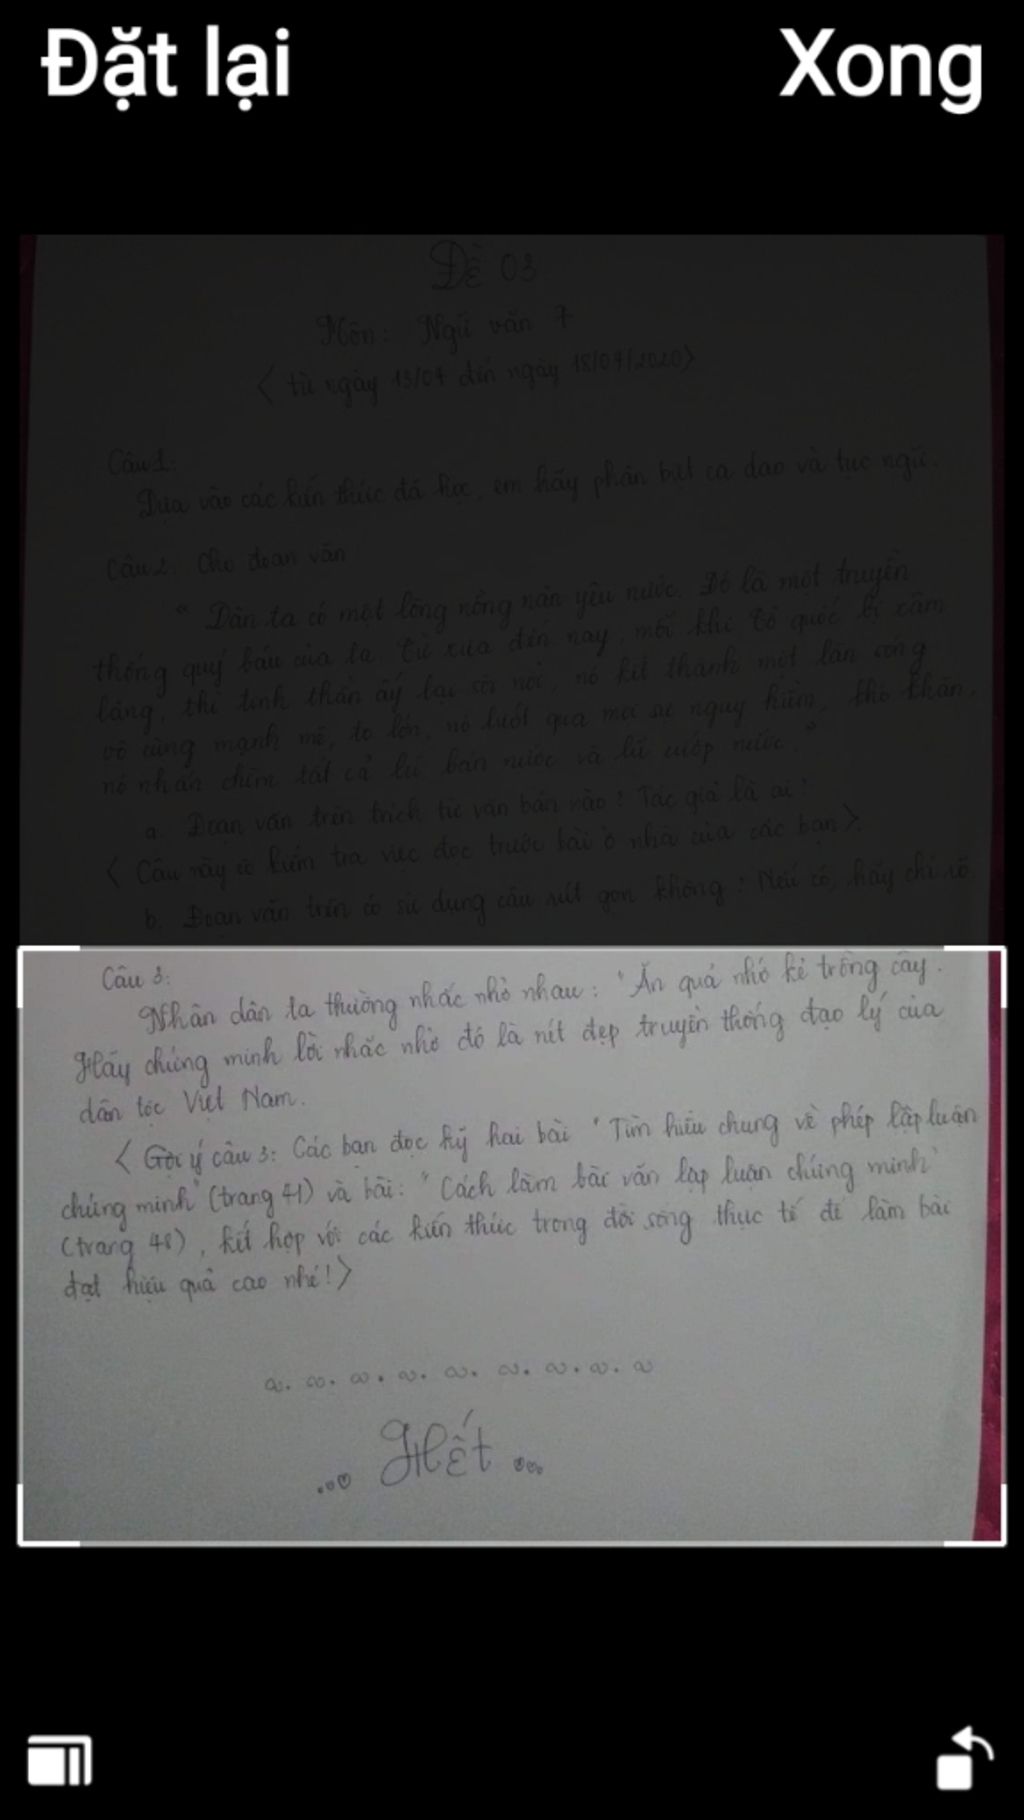 Đặt lại
Xong
Đề 03
Môn: Ngữ văn 7
<từ ngày 13/04 đến ngày 18/04/2020>
Câu 1:
Dựa vào các kiến thức đã học, em hãy phân biệt ca dao và tục ngữ.
Câu 2: Cho đoạn văn
"Dân ta có một lòng nồng nàn yêu nước. Đó là một truyền
thống quý báu của ta. Từ xưa đến nay, mỗi khi Tổ quốc bị xâm
lăng, thì tinh thần ấy lại sôi nổi, nó kết thành một làn sóng
vô cùng mạnh mẽ, to lớn, nó lướt qua mọi sự nguy hiểm, khó khăn,
nó nhấn chìm tất cả lũ bán nước và lũ cướp nước."
a. Đoạn văn trên trích từ văn bản nào? Tác giả là ai?
<Câu này để kiểm tra việc đọc trước bài ở nhà của các bạn>.
b. Đoạn văn trên có sử dụng câu rút gọn không? Nếu có, hãy chỉ rõ.
Câu 3:
Nhân dân ta thường nhắc nhở nhau: "Ăn quả nhớ kẻ trồng cây.
Hãy chứng minh lời nhắc nhở đó là nét đẹp truyền thống đạo lý của
dân tộc Việt Nam.
<Gợi ý câu 3: Các bạn đọc kỹ hai bài "Tìm hiểu chung về phép lập luận
chứng minh" (trang 41) và bài: "Cách làm bài văn lập luận chứng minh"
(trang 48), kết hợp với các kiến thức trong đời sống thực tế để làm bài
đạt hiệu quả cao nhé!>
... Hết ...